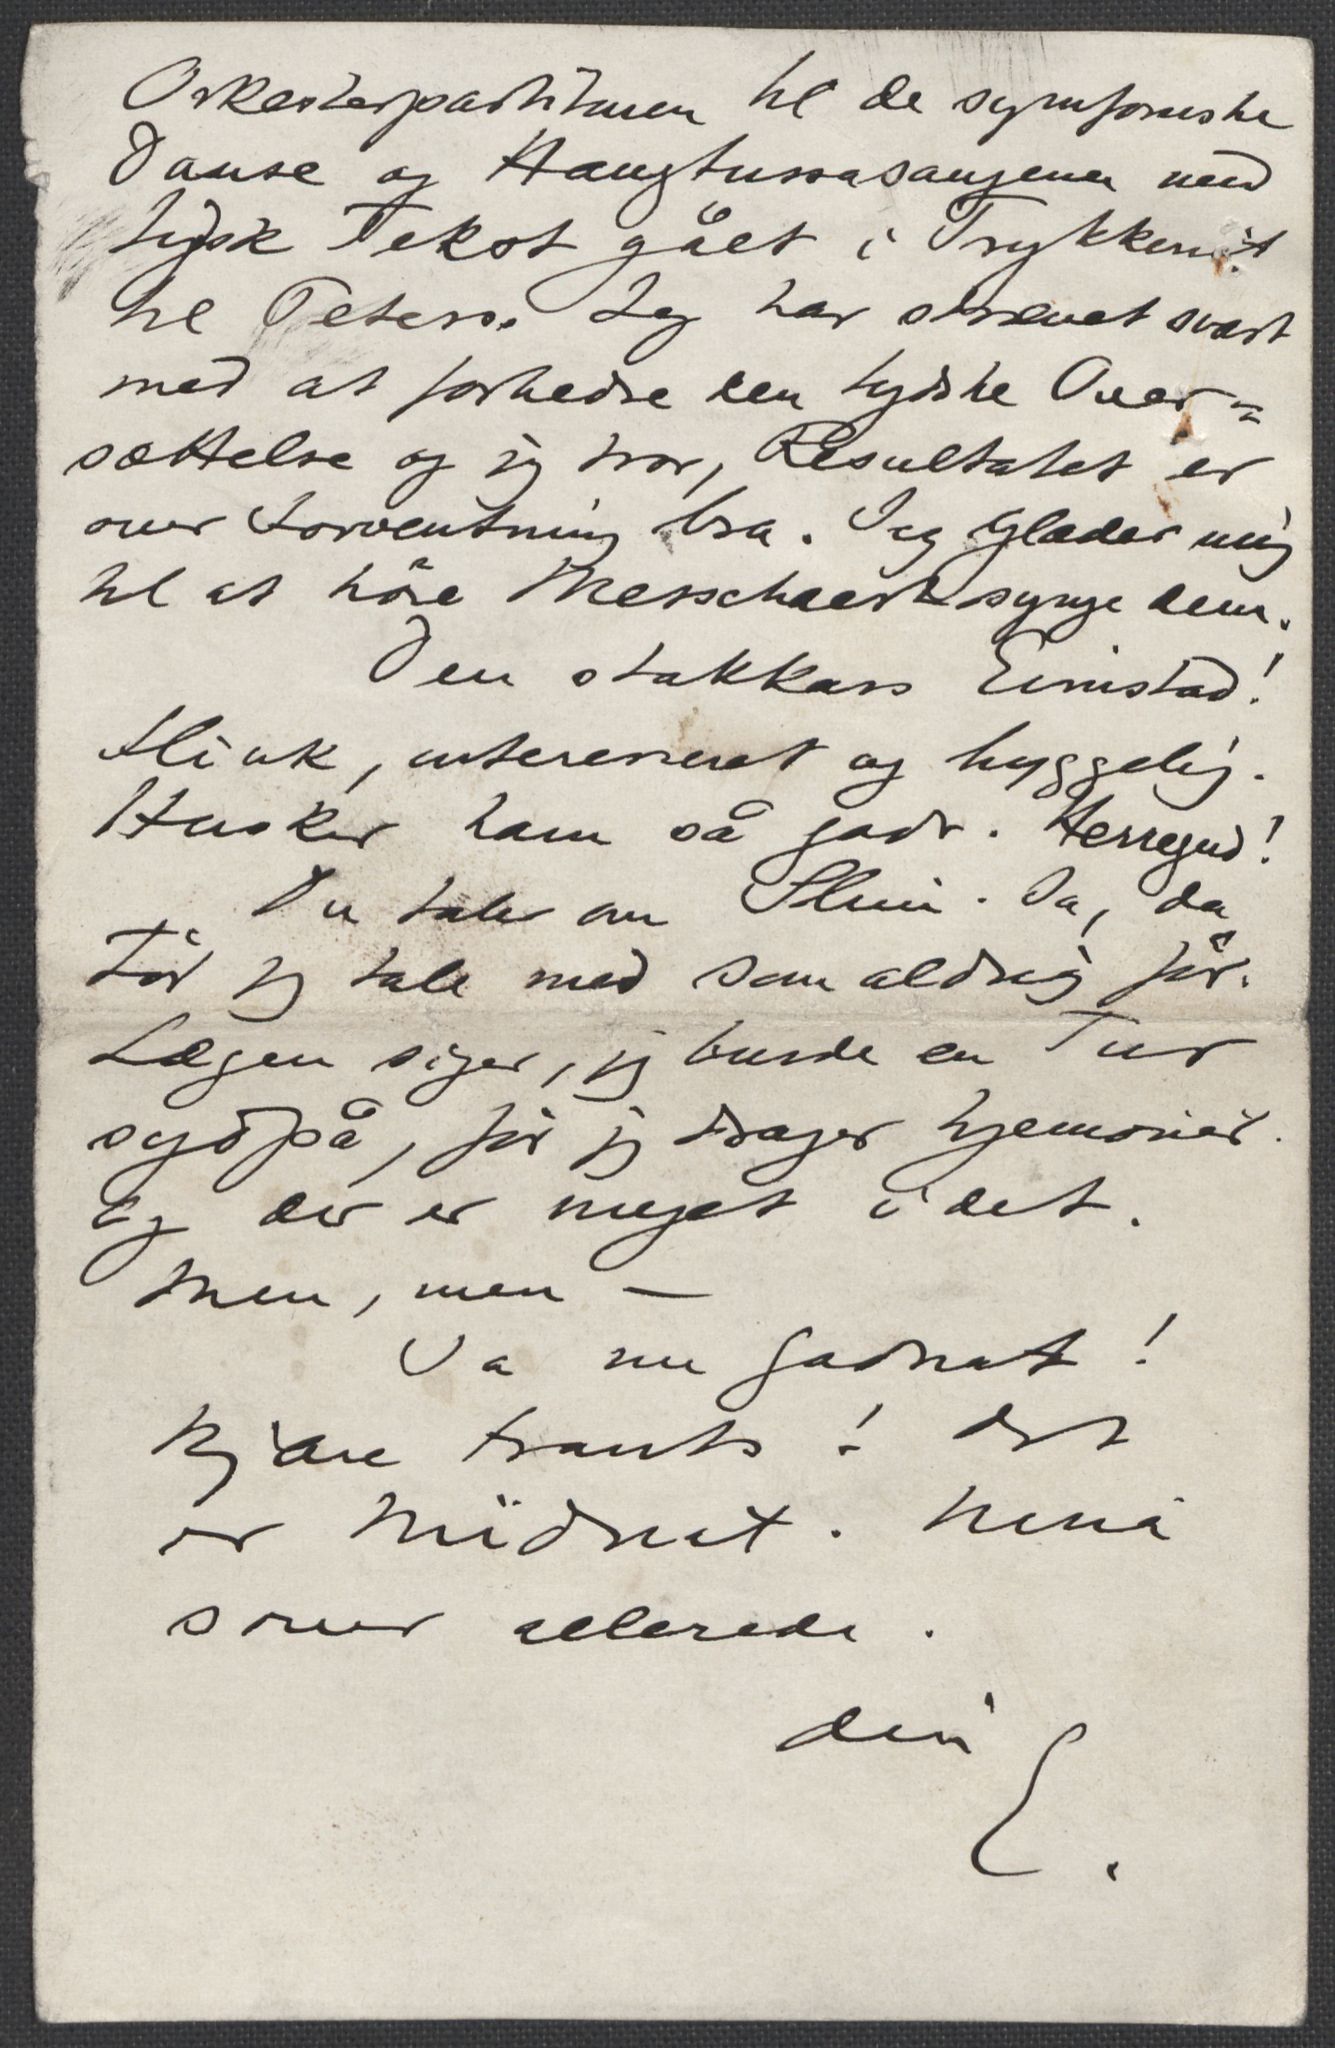 Orkesterpartituren til de symfoniske
Danse og Haugtussasangene med
tydsk Tekst gået i Trykken
til Peters. Jeg har strævet svært
med at forbedre den tydske Over=
sættelse og jeg tror, Resultatet er
over Forventning bra. Jeg glæder mig
til at höre Messchaert synge dem.
Den stakkars
Flink, interesseret og hyggelig.
Husker ham så godt. Herregud!
Du taler om Slim. Ja, da
tör jeg tale med som aldrig för.
Lægen siger, jeg burde en Tur
sydpå, för jeg drager hjemover.
Og der er meget i det.
Men, men —
Ja nu Godnat!
Kjære Frants! Det
er Midnat. Nina
sover allerede.
Din
E.